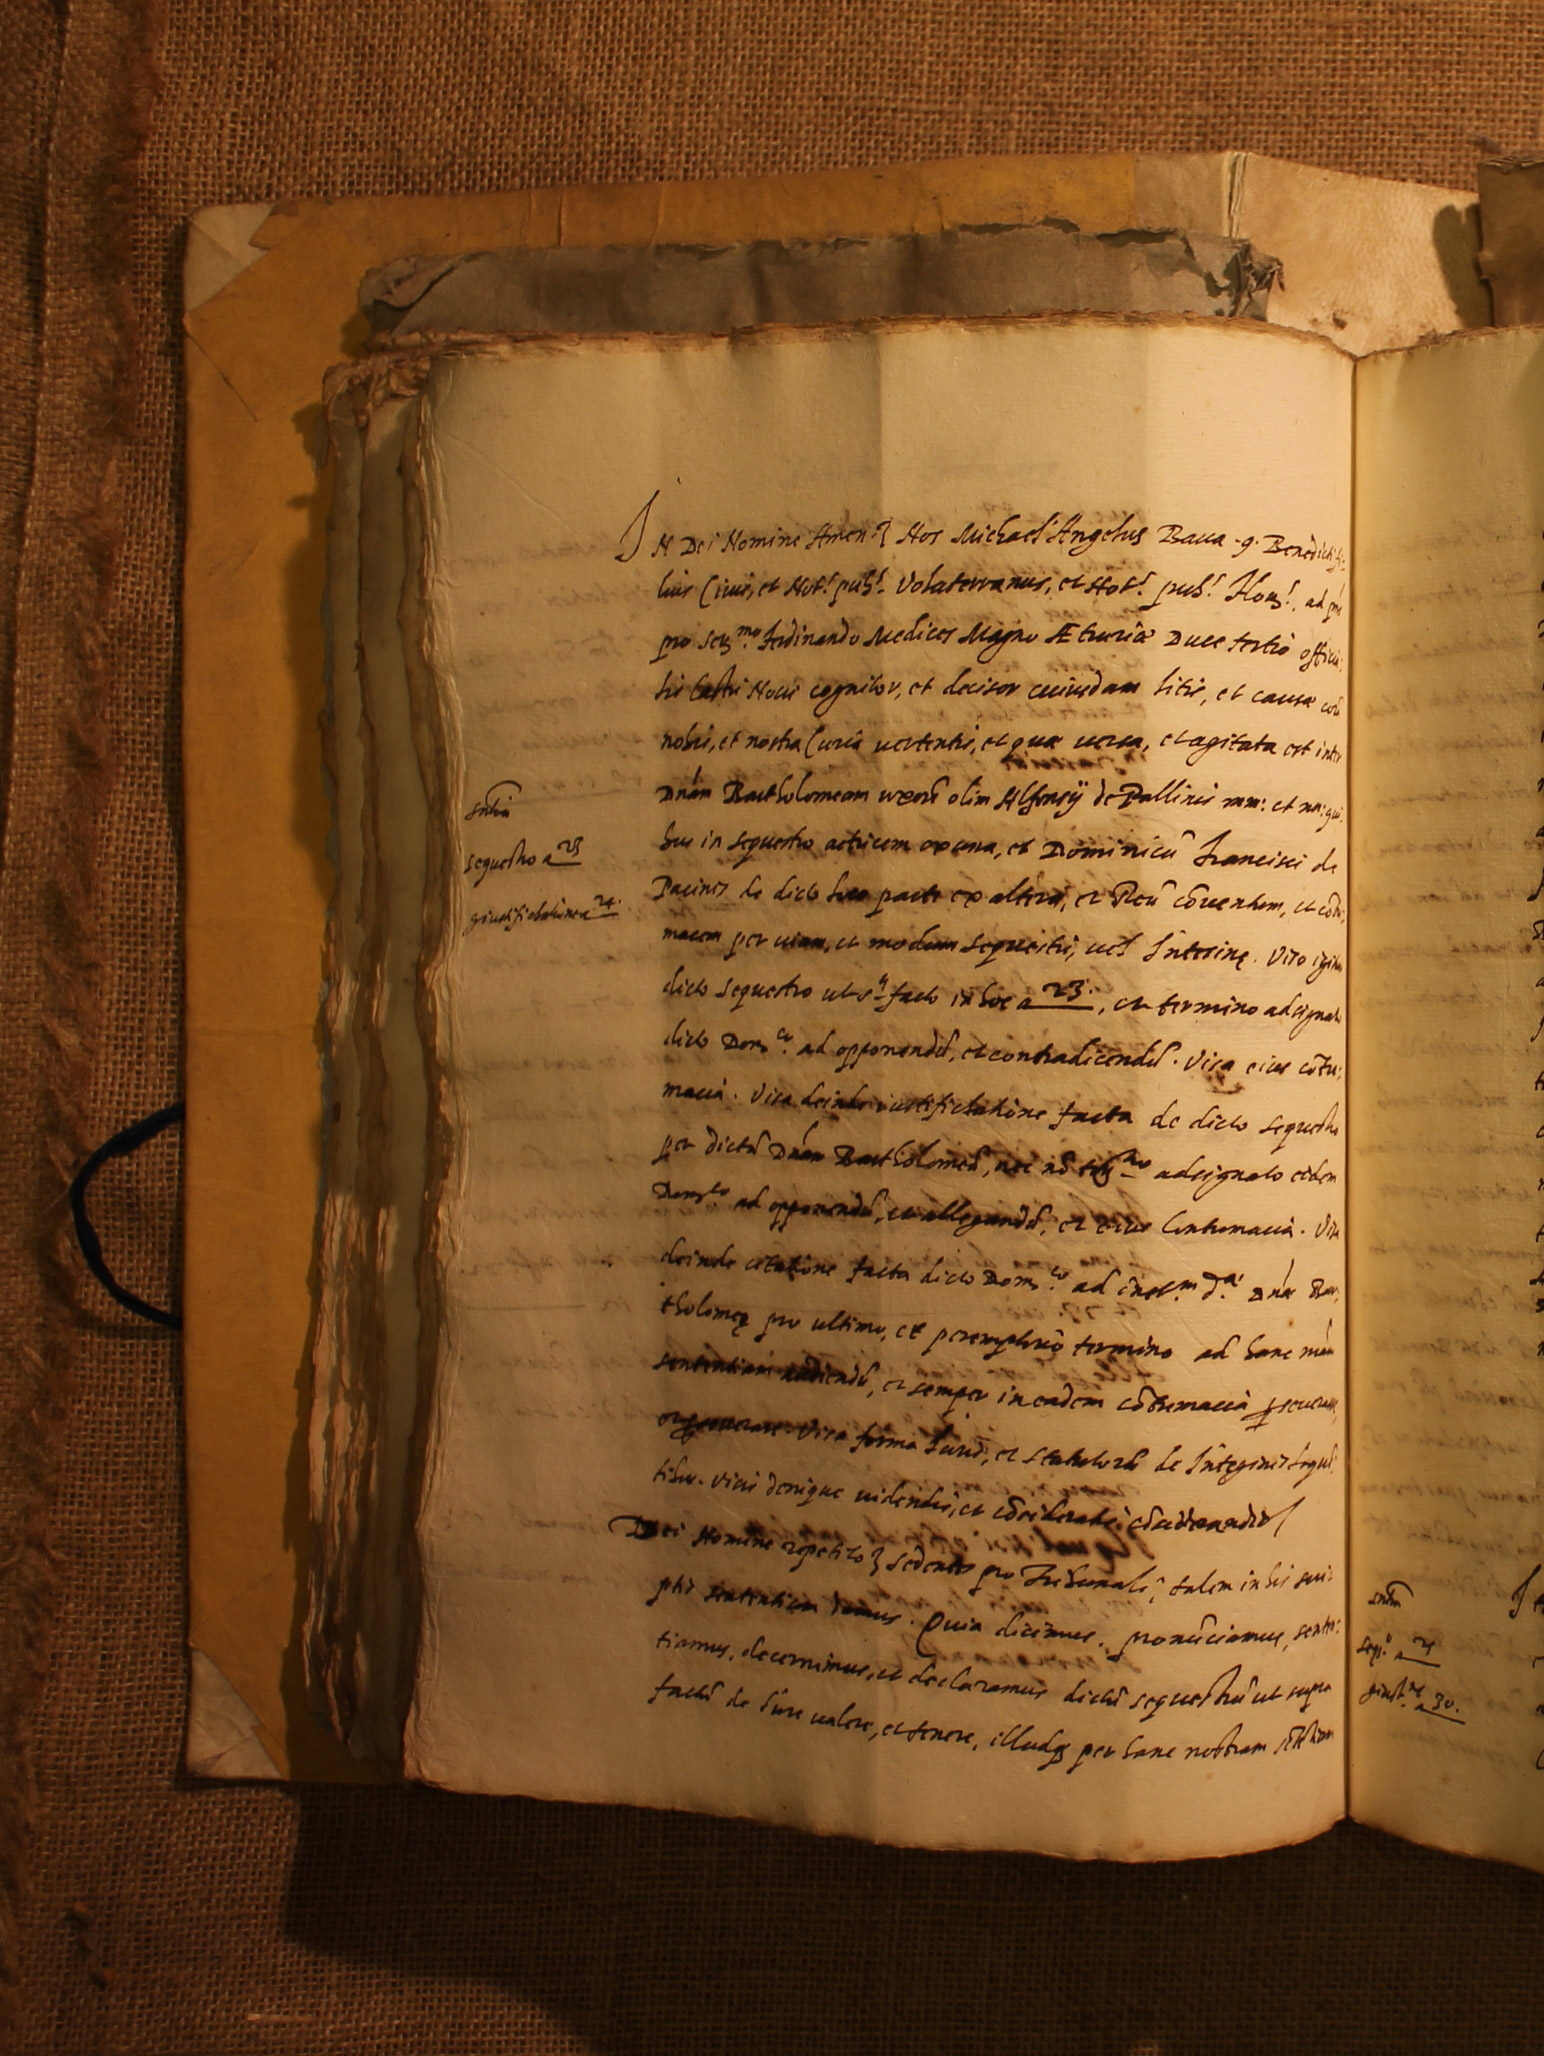 In Dei Nomine Amen. Nos Michael Angelus Baua q. Benedicti fi:
lius Ciuis, et Not.s pub.s Volaterranus, et Not.s pub.s Flor.s, ad pns
pro Ser.mo Ferdinando Medices Magno Ætruriæ Duce tertio officia:
lis Castri Noui cognitor, et decisor cuiusdam litis, et causæ corã
nobis, et nostra Curiâ uertentis, et quæ uersa, et agitata est inter
Dnâm Bartholomeam uxorẽ olim Alfonsij de Pallinis
bus in sequestro actricem ex una, et Dominicũ Francisci de
Pacinis de dicto loco parte ex altera, et Reũ cõuentum, et cõtu:
macem per uiam, et modum sequestri, uel Interinę. Viso igitur
dicto sequestro ut s.a facto in hoc a 23., et termino adsignato
dicto Dom.co ad opponendũ, et contradicendũ. Visa eius cõtu:
macia. Visa deinde iustificatione facta de dicto sequestro
per dictã Dnâm Bartholomeã, nec nõ adsignato eidem
Dom.co ad opponendũ, et allegandũ, et eius Contumaciâ. Visa
deinde citatione facta dicto Dom.co ad inst.m d.æ Dnæ Bar:
tholomeę pro ultimo, et peremptorio termino ad hanc nrãm
sententiam audiendũ, et semper in eadem cõtumaciâ perseuerasse,
Visa forma Iuris, et statutorũ de Interinis loquẽ:
tibus. Visis denique uidendis, et cõsideratis cõsiderandis
Dei Nomine repetito sedentes pro Tribunali, talem in his scri:
ptis sententiam damus. Quia dicimus, pronũciamus, senten:
tiamus, decernimus, et declaramus dictũ sequestrũ ut supra
factũ de Iure ualere, et tenere, illudq. per hanc nostram
sntia
sequestro a 23
giustifichatione a 24.
sntia
seq.o a 25
giust.ne a 30.